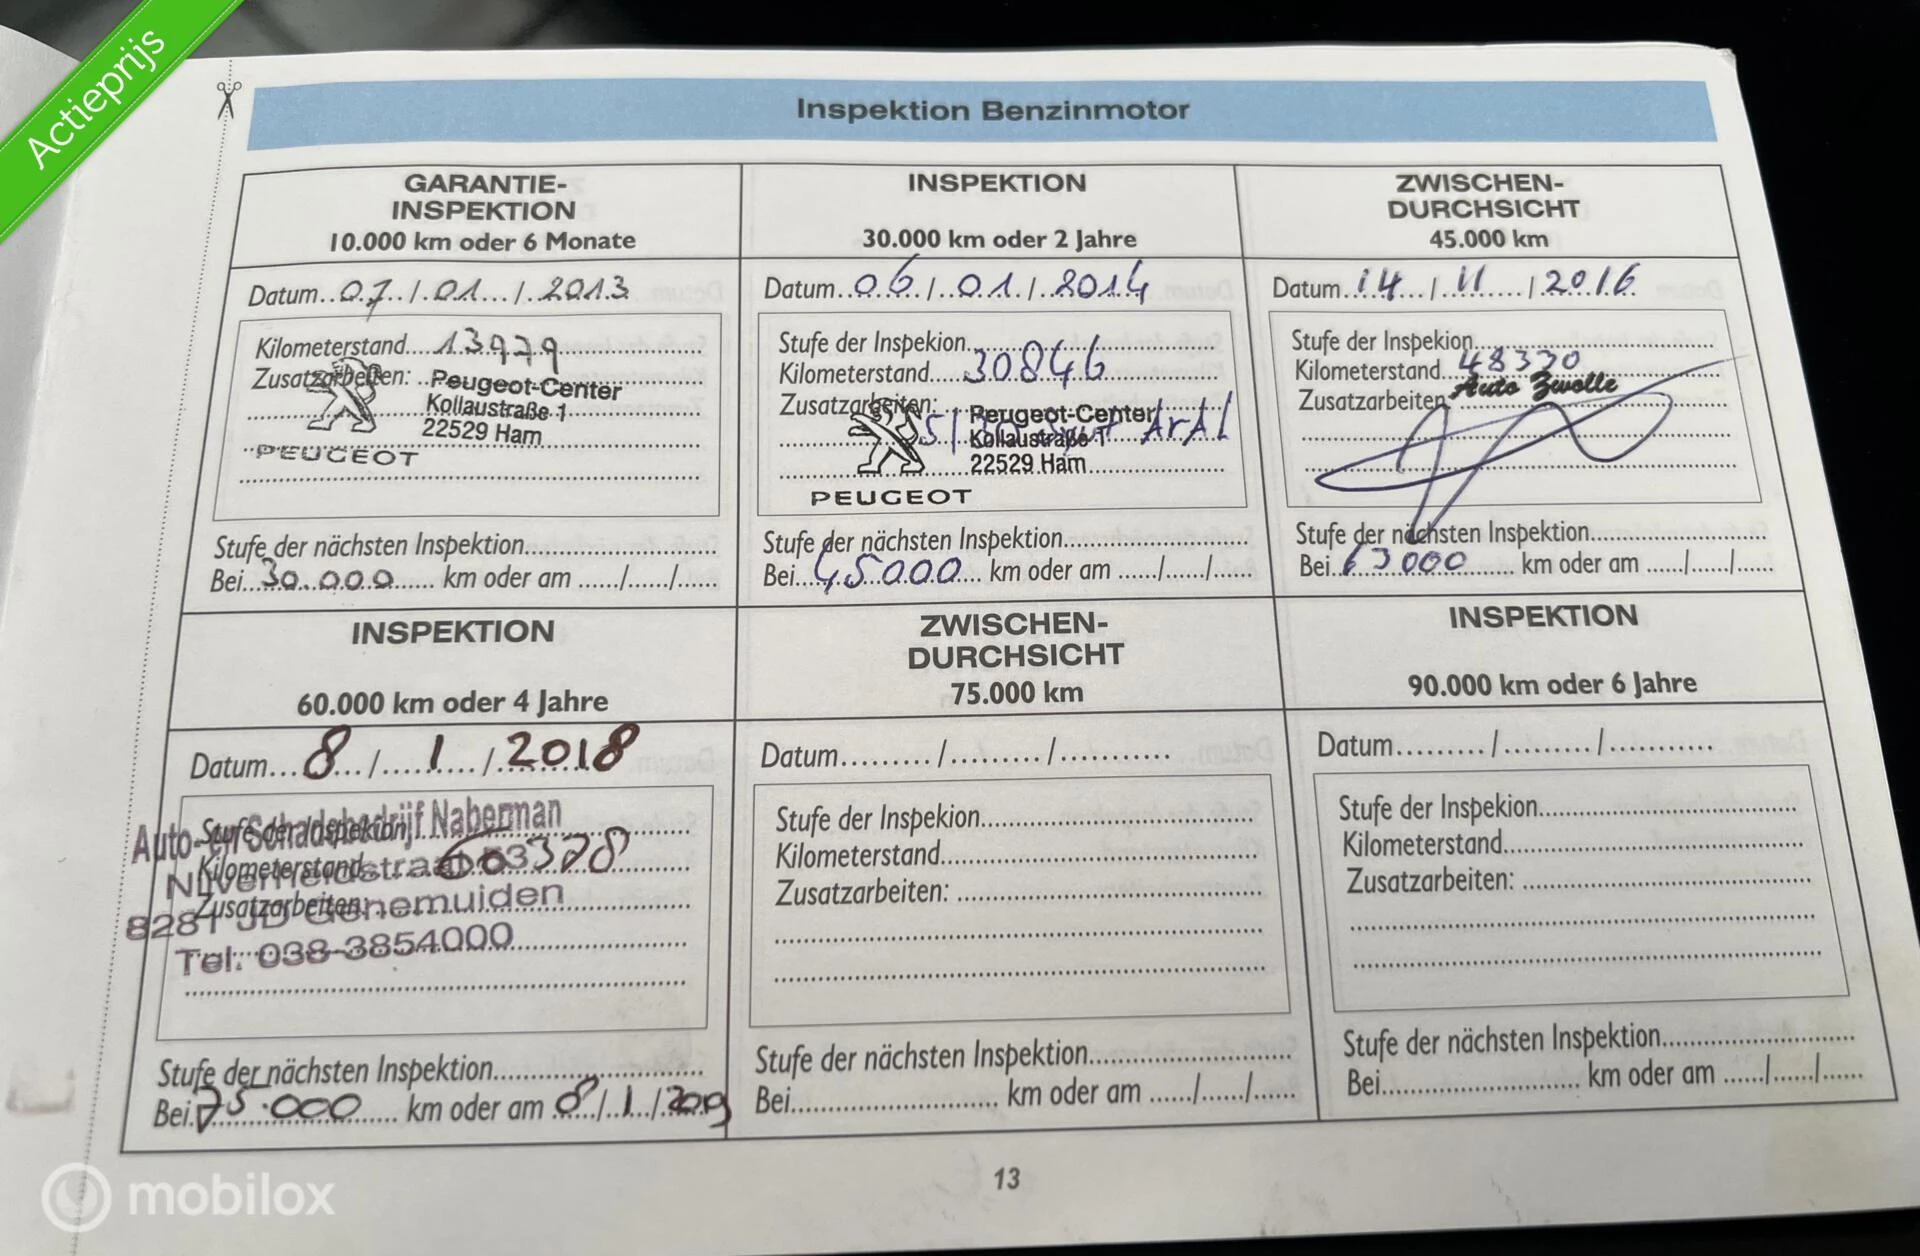 Actieprijs
Inspektion Benzinmotor
GARANTIE-
INSPEKTION
10.000 km oder 6 Monate
Datum..07../.01.../..2013
Kilometerstand....13979
Zusatzarbeiten:
Peugeot-Center
Kollaustraße 1
22529 Ham
PEUGEOT
Stufe der nächsten Inspektion
Bei...30.000...... km oder am ....../....../......
INSPEKTION
30.000 km oder 2 Jahre
Datum..06./..01./..2014
Stufe der Inspekion
Kilometerstand....30846
Zusatzarbeiten:
Peugeot-Center
Kollaustraße 1
ArAL
22529 Ham
PEUGEOT
Stufe der nächsten Inspektion
Bei...45000... km oder am ....../....../......
ZWISCHEN-
DURCHSICHT
45.000 km
Datum..14.../..11....../.2016.
Stufe der Inspekion
Kilometerstand..48330
Zusatzarbeiten
Auto Zwolle
Stufe der nächsten Inspektion
Bei..63000....... km oder am ....../....../......
INSPEKTION
60.000 km oder 4 Jahre
Datum...8.../.....1..../.2018
Auto- en Schadebedrijf Naberman
Stufe der Inspekion
Kilometerstand....60378
Nijverheidstraat 53
Zusatzarbeiten:
8281 JD Genemuiden
Tel. 038-3854000
Stufe der nächsten Inspektion
Bei.75.000...... km oder am ..8../..1../.
ZWISCHEN-
DURCHSICHT
75.000 km
Datum........./........../...........
Stufe der Inspekion
Kilometerstand
Zusatzarbeiten:
Stufe der nächsten Inspektion
Bei............................ km oder am ....../....../......
INSPEKTION
90.000 km oder 6 Jahre
Datum........./........../...........
Stufe der Inspekion
Kilometerstand
Zusatzarbeiten:
Stufe der nächsten Inspektion
Bei............................ km oder am ....../....../......
13
mobilox